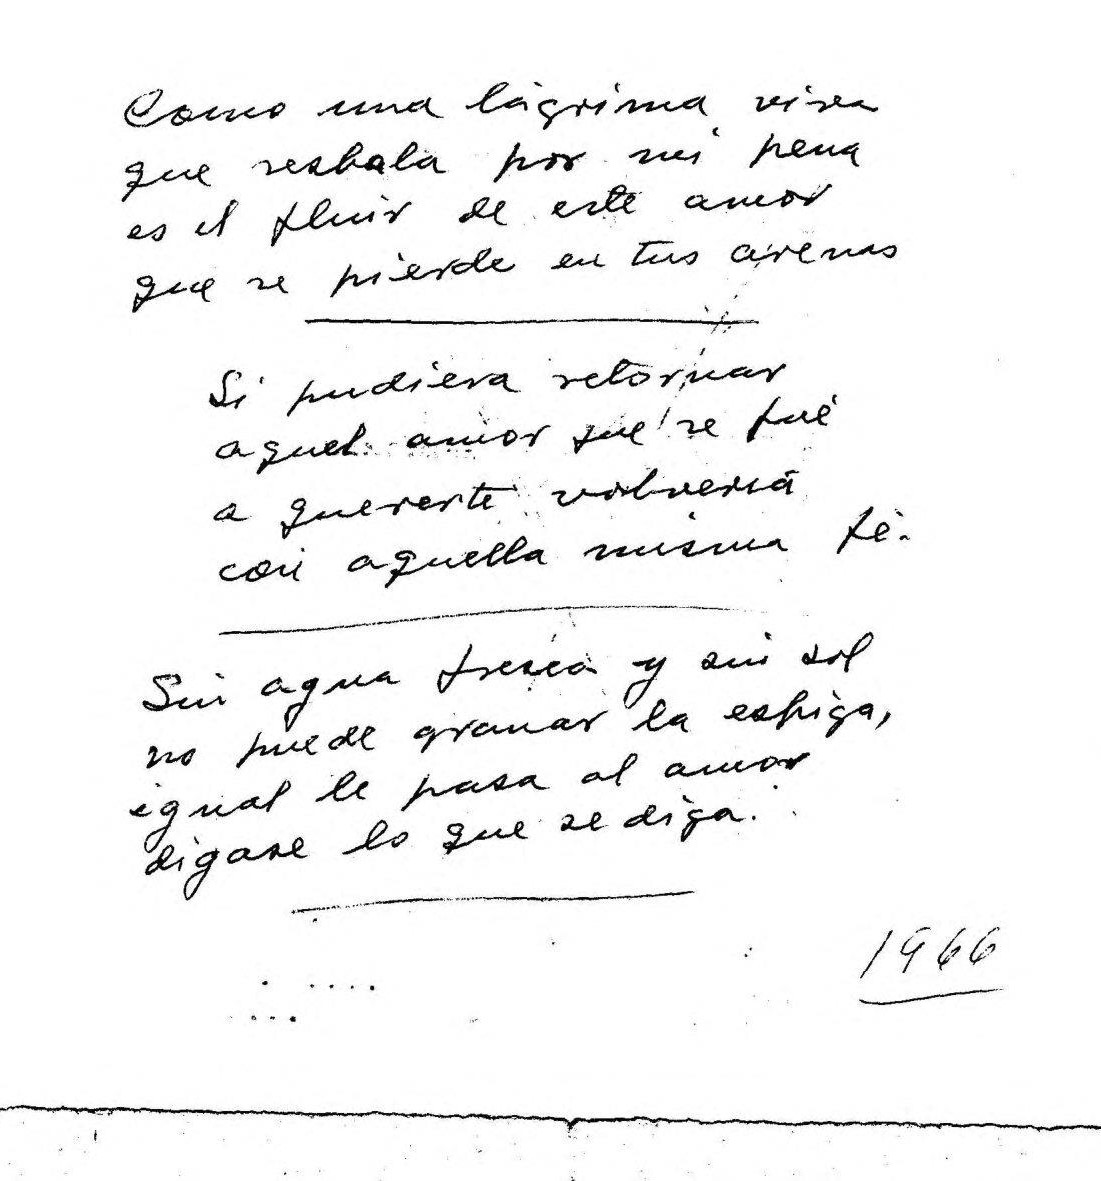 Como una lágrima viva
que resbala por mi pena
es el fluir de este amor
que se pierde en tus arenas
Si pudiera retornar
aquel amor que se fué
a quererte volvería
con aquella misma fé.
Sin agua fresca y sin sol
no puede granar la espiga,
igual le pasa al amor
digase lo que se diga.
1966